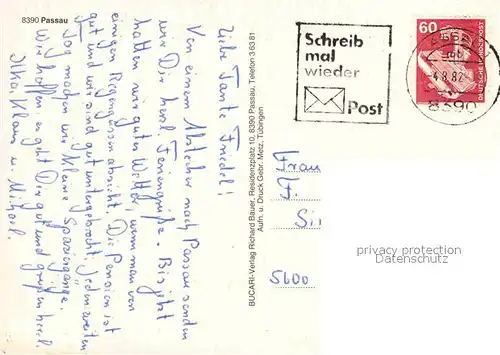 8390 Passau
Liebe Tante Friedel!
Von einem Abstecher nach Passau senden
wir Dir herzl. Feriengrüße. Bis jetzt
hatten wir gutes Wetter, wenn man von
einigen Regengüssen absieht. Die Pension ist
gut und wir sind gut untergebracht. Jeden zweiten
Tag machen wir kleine Spaziergänge.
Wir hoffen es geht Dir gut und grüßen herzl.
Klaus u. Michael.
BUCARI-Verlag Richard Bauer, Residenzplatz 10, 8390 Passau, Telefon 36381
Aufn. u. Druck Gebr. Metz, Tübingen
Schreib
mal
wieder
Post
60
DEUTSCHE BUNDESPOST
4.8.82
8390
Frau
F.
Si
5600
privacy protection
Datenschutz